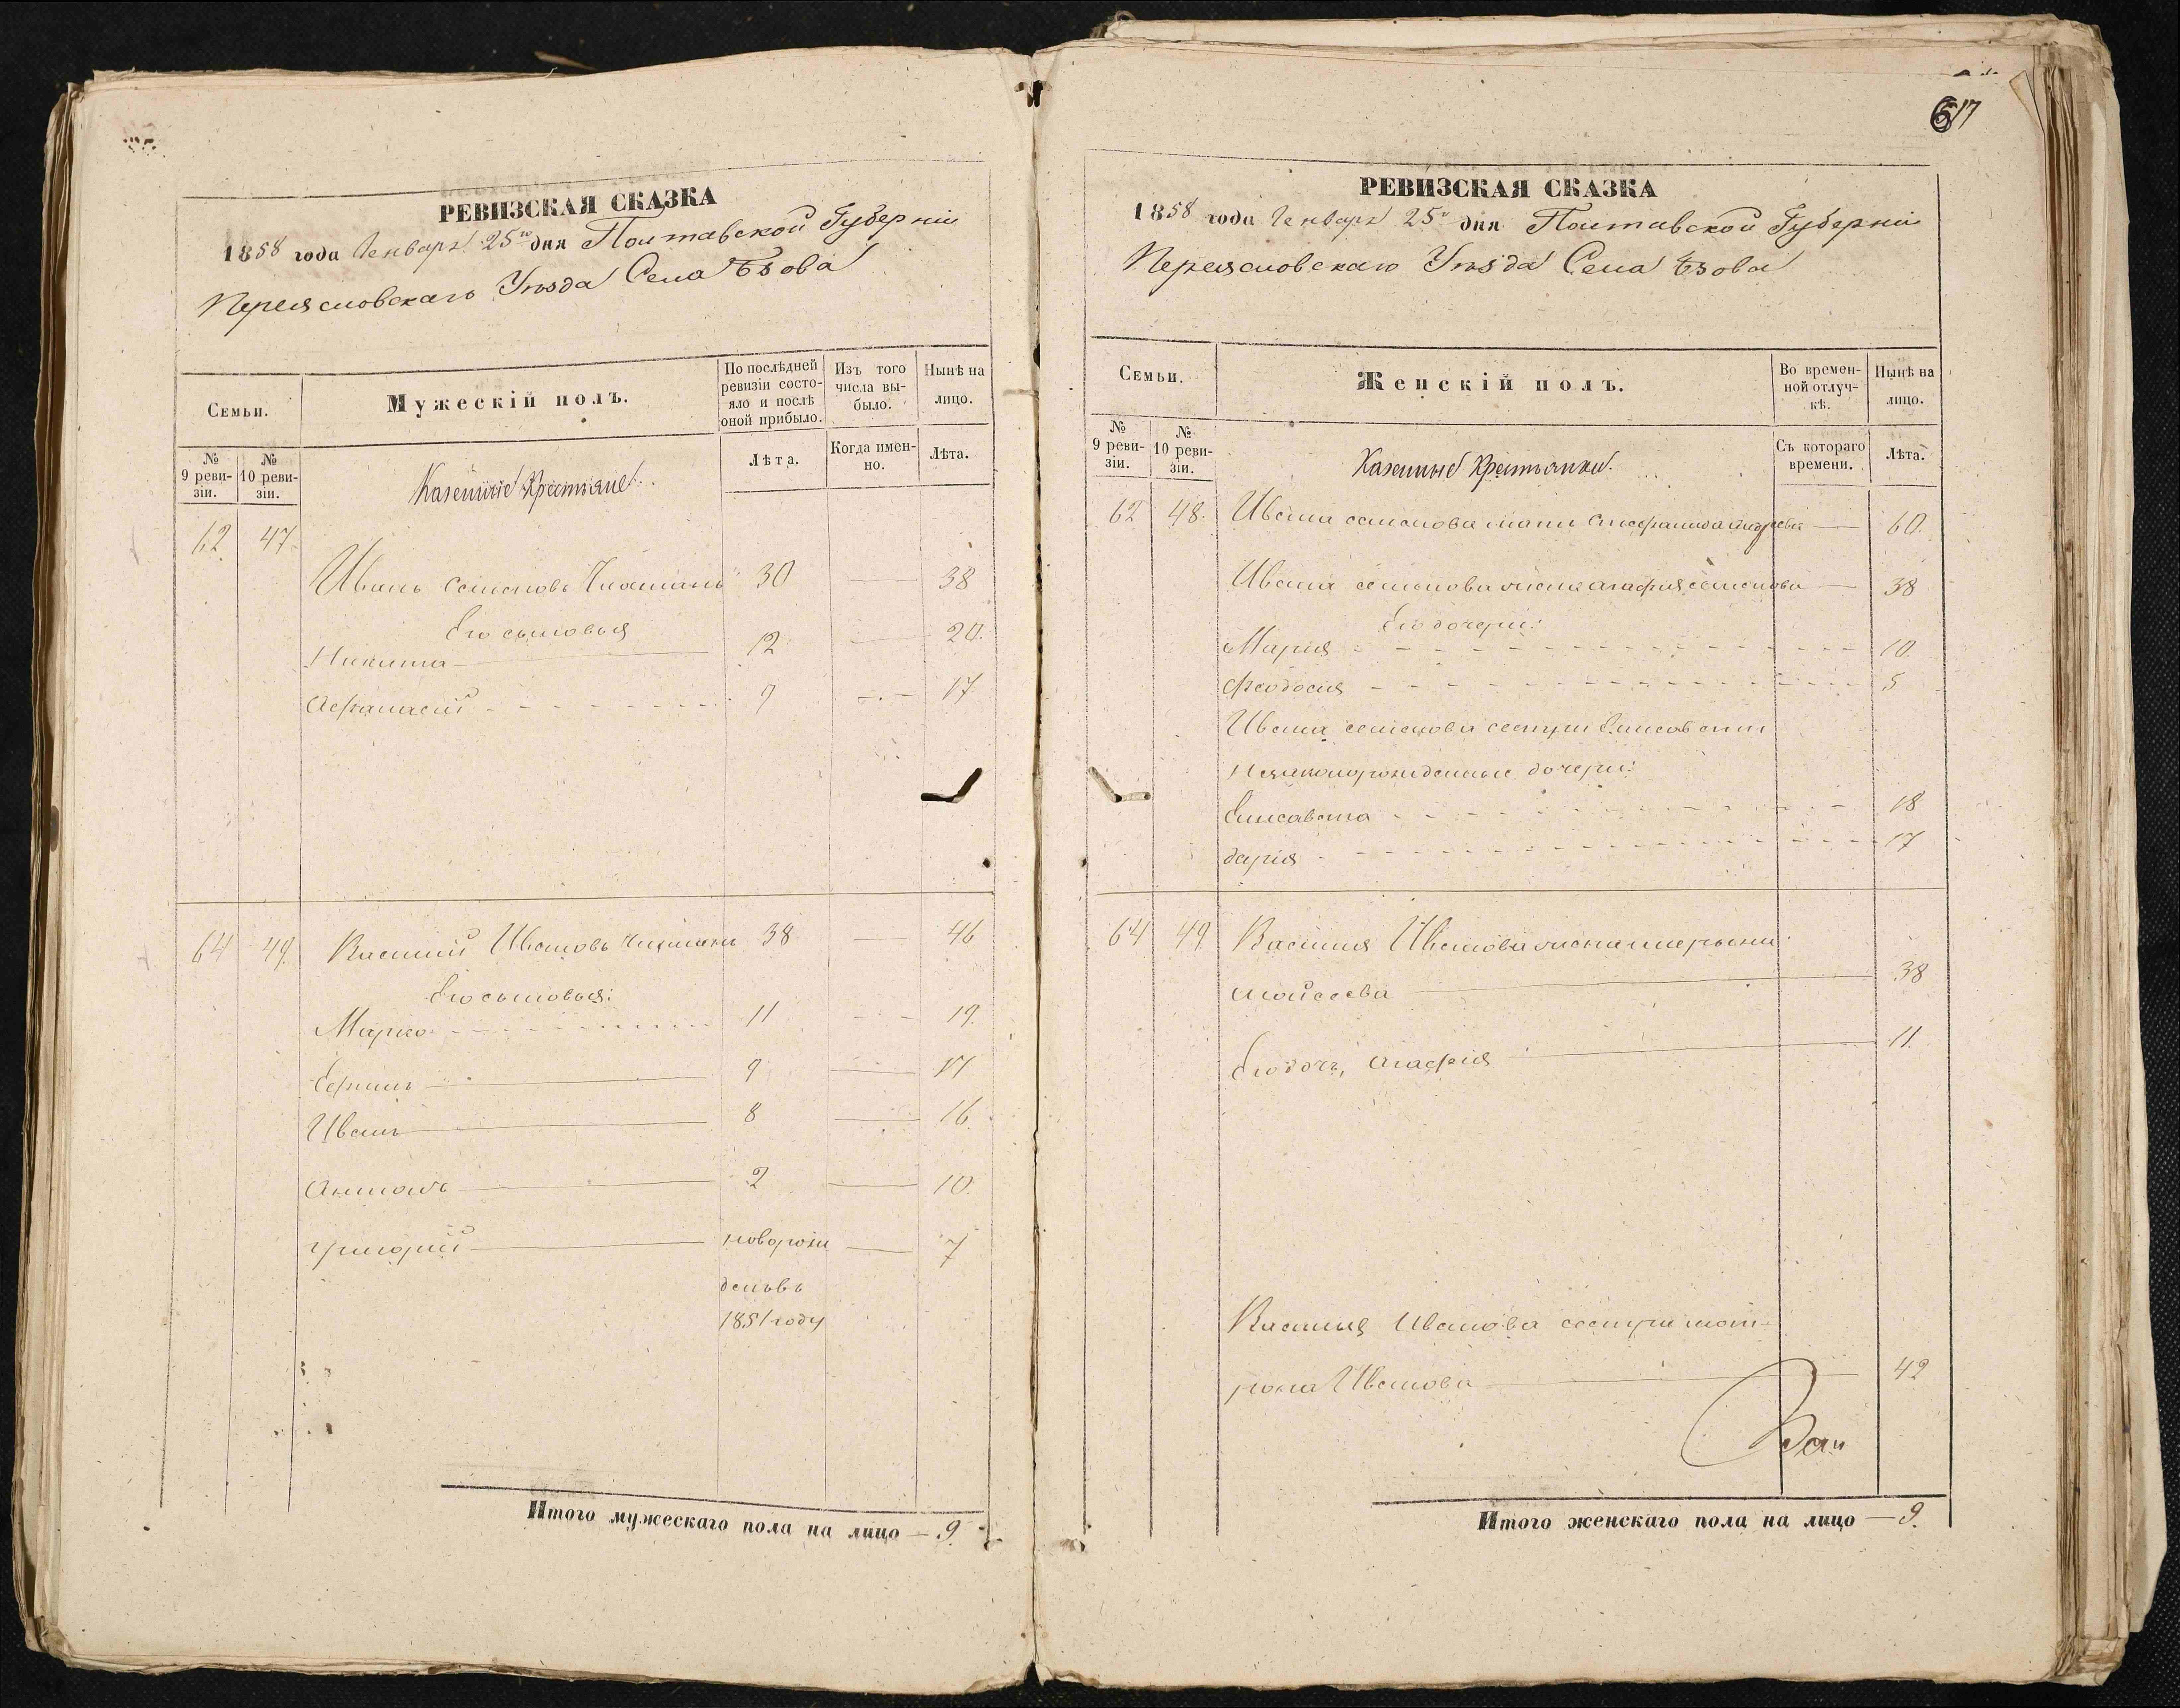 617
РЕВИЗСКАЯ СКАЗКА
1858 года Генваря 25го дня Полтавской Губерніи
Переясловскаго Уѣзда Села
Семьи.
Мужескій полъ.
По послѣдней ревизіи состояло и послѣ оной прибыло.
Изъ того числа выбыло.
Нынѣ на лицо.
№ 9 ревизіи.
№ 10 ревизіи.
Лѣта.
Когда именно.
Лѣта.
Казенные Крестьяне
62 47
Иванъ Семеновъ 30 — 38
Его сыновья
Никита — 12 — 20.
Афанасій - - - 9 — 17
64 49. Василий Ивановъ 38 — 46
Его сыновья:
Марко - - - 11 - - 19.
Ефимъ — 9 — 17
Иванъ — 8 — 16
Антонъ — 2 — 10.
Григорий — новорож — 7
денъ въ
1851 году
Итого мужескаго пола на лицо — 9.
РЕВИЗСКАЯ СКАЗКА
1858 года Генваря 25го дня Полтавской Губерніи
Переясловскаго Уѣзда Села
Семьи.
Женскій полъ.
Во временной отлучкѣ.
Нынѣ на лицо.
№ 9 ревизіи.
№ 10 ревизіи.
Съ котораго времени.
Лѣта.
Казенные Крестьянки.
62 48. Ивана Семенова мать — 60.
Ивана Семенова жена Агафия Семенова — 38
Его дочери:
Мария - - - 10.
Феодосия - - - 5
Ивана Семенова сестры Елисаветы
Незаконорожденные дочери:
Елисавета - - - 18
Дария - - - 17
64 49. Василия Иванова жена
Мойсеева — 38
Его дочь, Агафия — 11.
Василия Иванова сестра Мот-
рона Иванова — 42
Итого женскаго пола на лицо — 9.